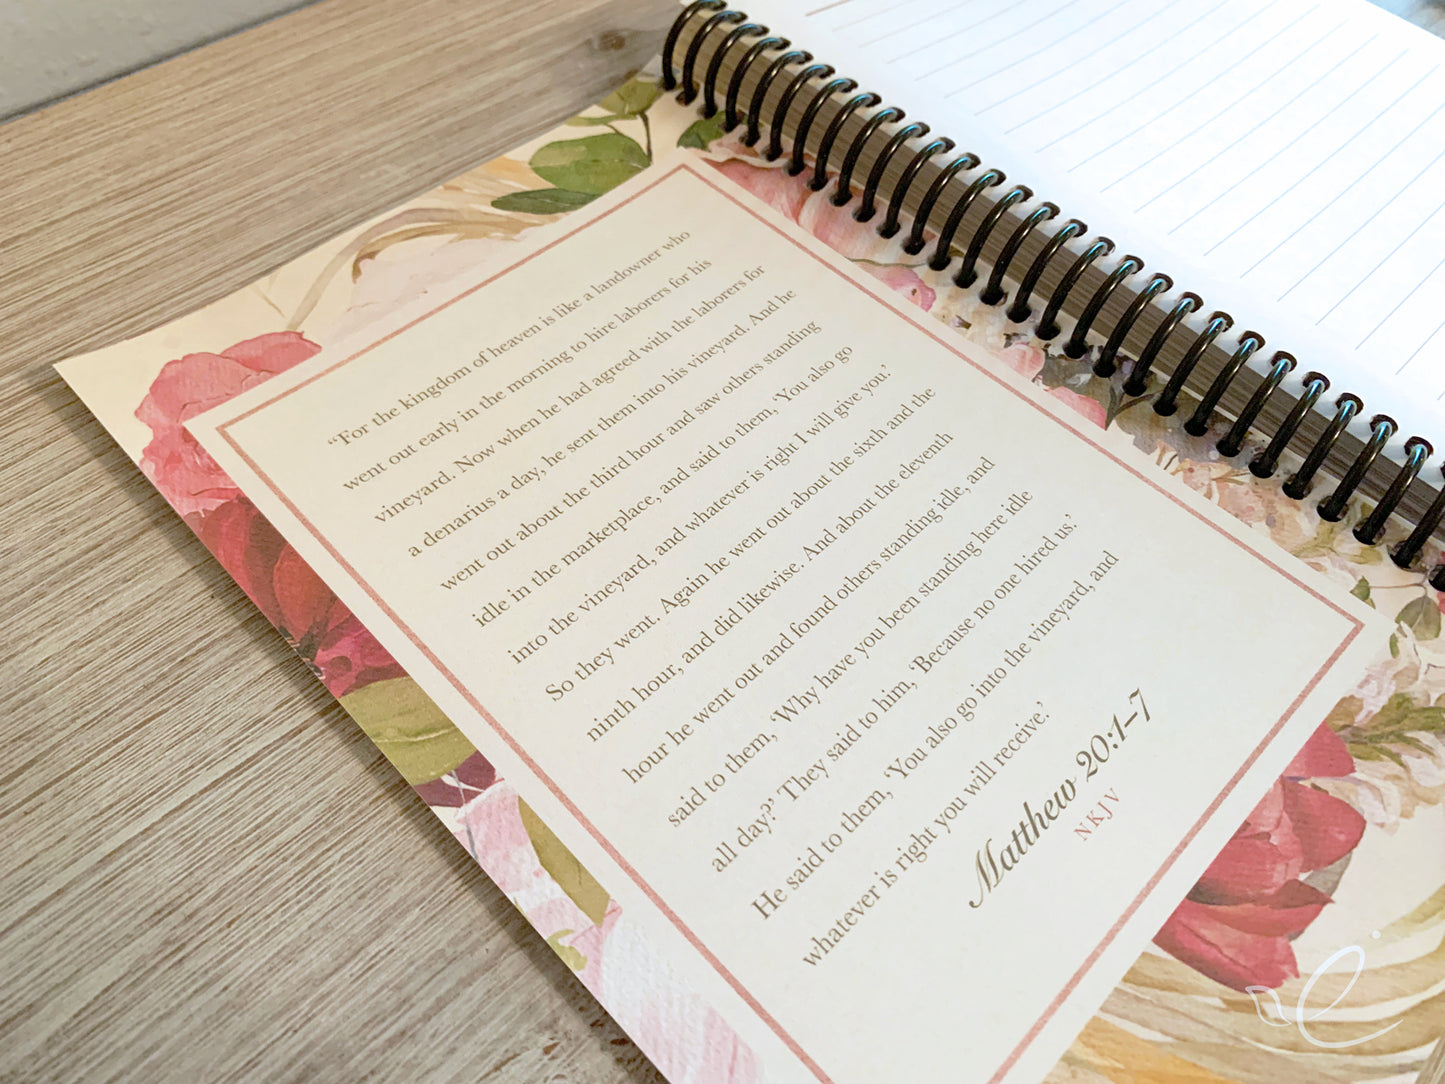 “For the kingdom of heaven is like a landowner who
went out early in the morning to hire laborers for his
vineyard. Now when he had agreed with the laborers for
a denarius a day, he sent them into his vineyard. And he
went out about the third hour and saw others standing
idle in the marketplace, and said to them, ‘You also go
into the vineyard, and whatever is right I will give you.’
So they went. Again he went out about the sixth and the
ninth hour, and did likewise. And about the eleventh
hour he went out and found others standing idle, and
said to them, ‘Why have you been standing here idle
all day?’ They said to him, ‘Because no one hired us.’
He said to them, ‘You also go into the vineyard, and
whatever is right you will receive.’
Matthew 20:1–7
NKJV